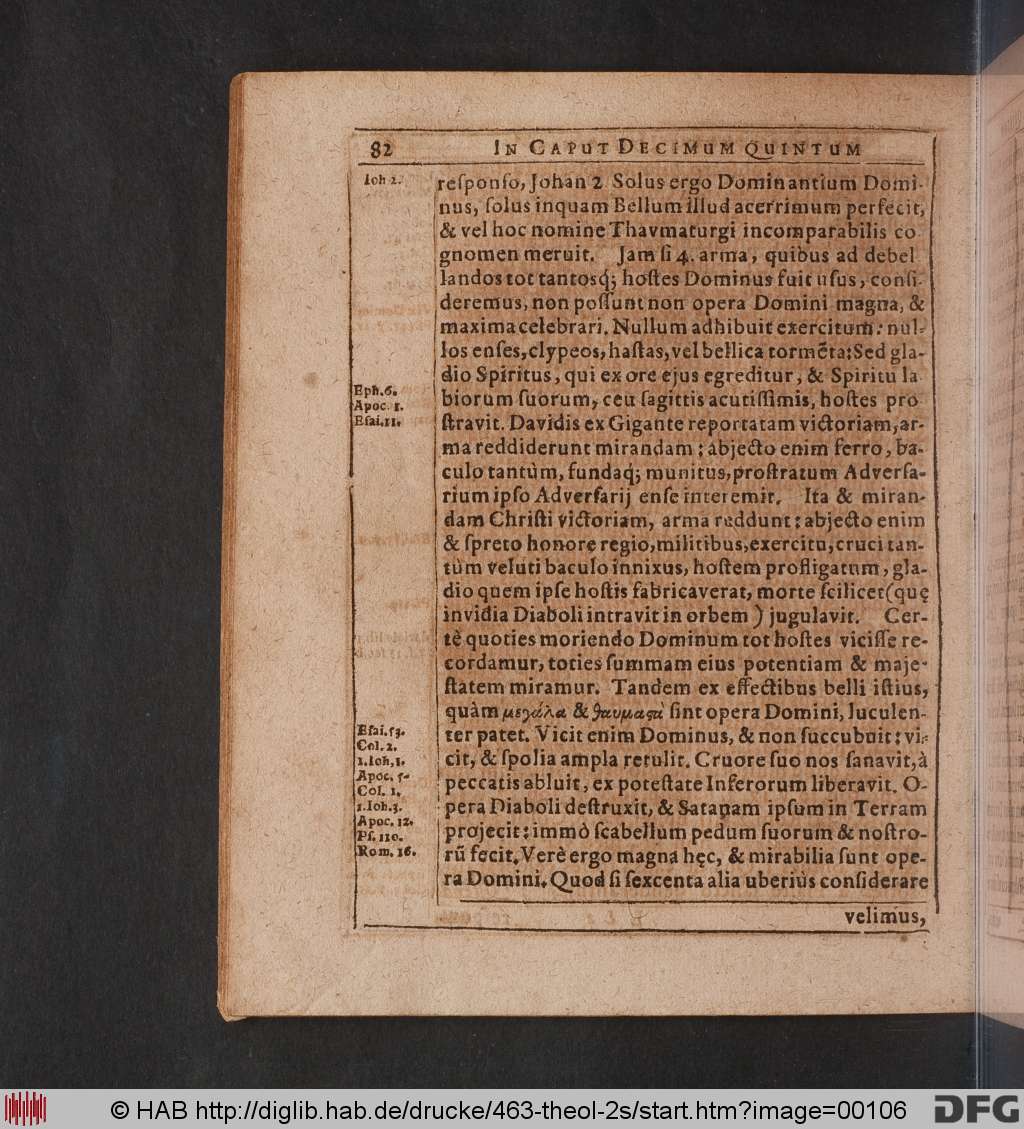 82 IN CAPUT DECIMUM QUINTUM
Ioh 2.
reſponſo, Johan 2 Solus ergo Dominantium Domi-
nus, ſolus inquam Bellum illud acerrimum perfecit,
& vel hoc nomine Thavmaturgi incomparabilis co
gnomen meruit. Jam ſi 4. arma, quibus ad debel
landos tot tantosq́; hoſtes Dominus fuit uſus, conſi-
deremus, non poſſunt non opera Domini magna, &
maxima celebrari. Nullum adhibuit exercitum: nul-
los enſes, clypeos, haſtas, vel bellica tormẽta: Sed gla-
dio Spiritus, qui ex ore ejus egreditur, & Spiritu la
Eph. 6.
Apoc. 1.
Eſai. 11.
biorum ſuorum, ceu ſagittis acutiſſimis, hoſtes pro
ſtravit. Davidis ex Gigante reportatam victoriam, ar-
ma reddiderunt mirandam: abjecto enim ferro, ba-
culo tantùm, fundaq́; munitus, proſtratum Adverſa-
rium ipſo Adverſarij enſe interemit. Ita & miran-
dam Chriſti victoriam, arma reddunt: abjecto enim
& ſpreto honore regio, militibus, exercitu, cruci tan-
tùm veluti baculo innixus, hoſtem profligatum, gla-
dio quem ipſe hoſtis fabricaverat, morte ſcilicet (quę
invidia Diaboli intravit in orbem) jugulavit. Cer-
tè quoties moriendo Dominum tot hoſtes viciſſe re-
cordamur, toties ſummam eius potentiam & maje-
ſtatem miramur. Tandem ex effectibus belli iſtius,
quàm μεγάλα & θαυμαςὰ ſint opera Domini, luculen-
Eſai. 53.
Col. 2.
1. Ioh, 1.
Apoc. 5-
Col. 1.
1. Ioh. 3.
Apoc. 12.
Pſ. 110.
Rom. 16.
ter patet. Vicit enim Dominus, & non ſuccubuit: vi-
cit, & ſpolia ampla retulit. Cruore ſuo nos ſanavit, à
peccatis abluit, ex poteſtate Inferorum liberavit. O-
pera Diaboli deſtruxit, & Satanam ipſum in Terram
projecit: immò ſcabellum pedum ſuorum & noſtro-
rũ fecit. Verè ergo magna hęc, & mirabilia ſunt ope-
ra Domini. Quod ſi ſexcenta alia uberiùs conſiderare
velimus,
© HAB http://diglib.hab.de/drucke/463-theol-2s/start.htm?image=00106
DFG